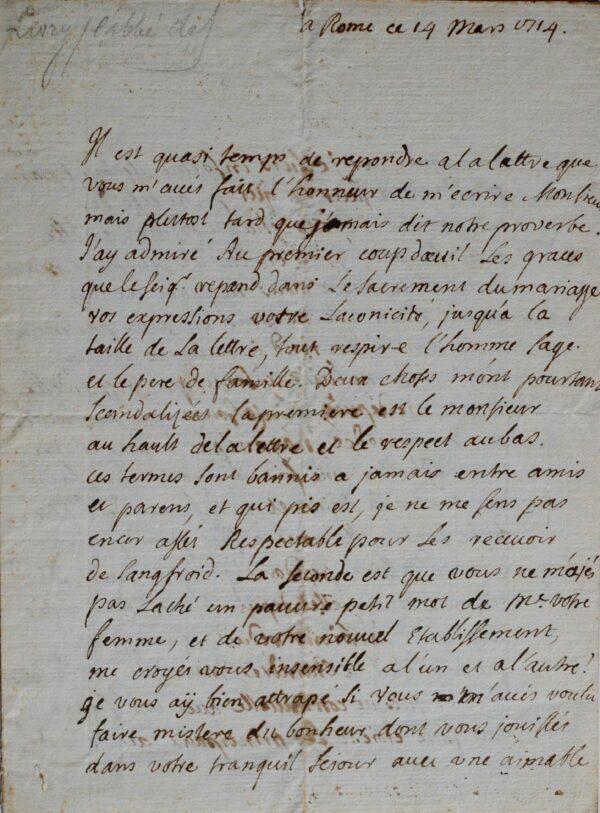 Livry l'abbé de
a Rome ce 14 Mars 1714.
Il est quasi temps de repondre a la lattre que
vous m'avés fait l'honneur de m'ecrire Monsieur
mais plustost tard que jamais dit notre proverbe.
J'ay admiré Au premier coup doeuil Les graces
que le seigr. repend dans Le sacrement du mariage
vos expressions votre Laconicité, jusqu'a la
taille de La lettre, tout respire l'homme sage
et le pere de famille. Deux choses m'ont pourtant
scandalizées la premiere est le monsieur
au hault de la lettre et le respect au bas.
ces termes sont bannis a jamais entre amis
et parens, et qui pis est, je ne me sens pas
encor assés Respectable pour Les recevoir
de sangfroid. La seconde est que vous ne m'ajés
pas Laché un pauvre petit mot de Me. votre
femme, et de votre nouvel Etablissement,
me croyés vous insensible a l'un et a l'autre!
je vous aÿ bien attrapé si vous m'avés voulu
faire mistere du bonheur dont vous jouissés
dans votre tranquil sejour avec une aimable